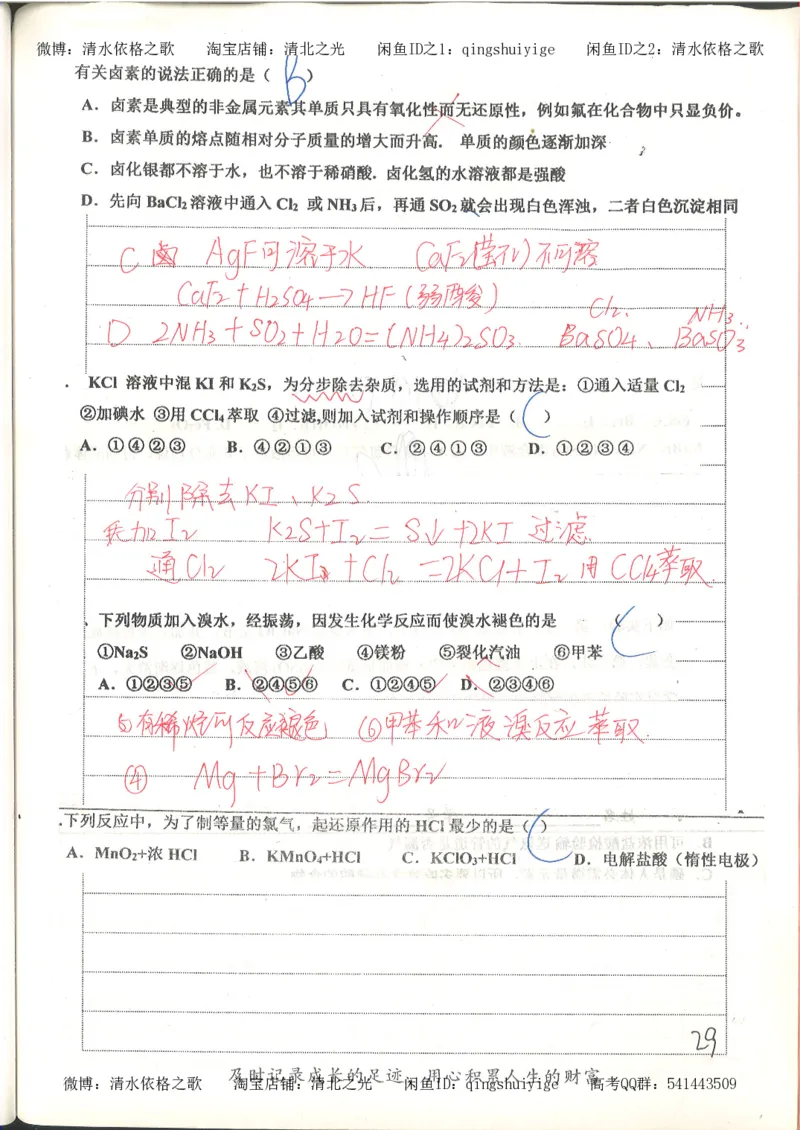 微博：清水依格之歌 淘宝店铺：清北之光 闲鱼ID之1：qingshuiyige 闲鱼ID之2：清水依格之歌
有关卤素的说法正确的是（ B ）
A．卤素是典型的非金属元素其单质只具有氧化性而无还原性，例如氟在化合物中只显负价。
B．卤素单质的熔点随相对分子质量的增大而升高．单质的颜色逐渐加深
C．卤化银都不溶于水，也不溶于稀硝酸．卤化氢的水溶液都是强酸
D．先向 BaCl₂ 溶液中通入 Cl₂ 或 NH₃ 后，再通 SO₂ 就会出现白色浑浊，二者白色沉淀相同
C 卤 AgF可溶于水 CaF₂(萤石)不可溶
CaF₂+H₂SO₄→HF(弱酸)
Cl₂. NH₃.
D 2NH₃+SO₂+H₂O=(NH₄)₂SO₃. BaSO₄、BaSO₃
． KCl 溶液中混 KI 和 K₂S，为分步除去杂质，选用的试剂和方法是：①通入适量 Cl₂
②加碘水 ③用 CCl₄ 萃取 ④过滤,则加入试剂和操作顺序是（ C ）
A．①④②③ B．④②①③ C．②④①③ D．①②③④
分别除去KI、K₂S.
先加I₂ K₂S+I₂=S↓+2KI 过滤
通Cl₂ 2KI+Cl₂=2KCl+I₂用CCl₄萃取
、下列物质加入溴水，经振荡，因发生化学反应而使溴水褪色的是 （ C ）
①Na₂S ②NaOH ③乙酸 ④镁粉 ⑤裂化汽油 ⑥甲苯
A．①②③⑤ B．②④⑤⑥ C．①②④⑤ D．②③④⑥
⑤有稀烃可反应褪色 ⑥甲苯和液溴反应 萃取.
④ Mg+Br₂=MgBr₂
.下列反应中，为了制等量的氯气，起还原作用的 HCl 最少的是（ C ）
A．MnO₂+浓 HCl B．KMnO₄+HCl C．KClO₃+HCl D．电解盐酸（惰性电极）
29
及时记录成长的足迹 用心积累人生的财富
微博：清水依格之歌 淘宝店铺：清北之光 闲鱼ID：qingshuiyige 高考QQ群：541443509